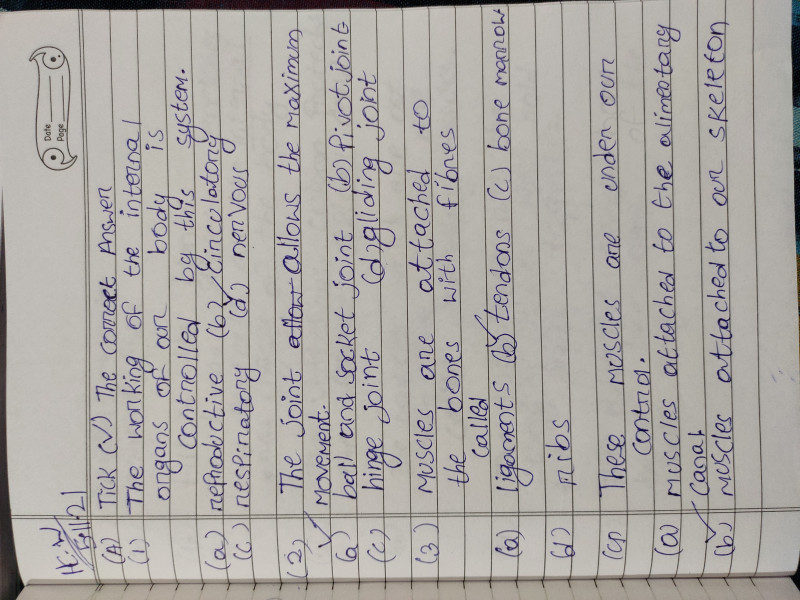 Date
Page
H.W
(A) Tick (✓) The correct Answer
(1) The working of the internal
organs of our body is
controlled by this system.
(a) reproductive (b) circulatory
(c) respiratory (d) nervous
(2) The joint allow allows the maximum
movement.
(a) ball and socket joint (b) Pivot joint
(c) hinge joint (d) gliding joint
(3) Muscles are attached to
the bones with fibres
called
(a) ligaments (b) tendons (c) bone marrow
(d) ribs
(4) These muscles are under our
control.
(a) muscles attached to the alimentary
canal
(b) muscles attached to our skeleton